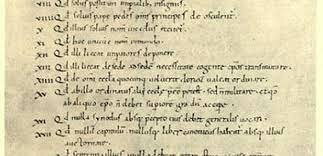 VIII Qd solus possit uti imperialib; insigniis.
VIIII Qd solius pape pedes oms principes deosculent.
X Qd illius solius nom in eccliis recitet.
XI Qd hoc unicu e nom in mundo.
XII Qd illi liceat impatores deponere.
XIII Qd illi liceat de sede ad sede necessitate cogente epos transmutare.
XIIII Qd de omi eccla quocunq; voluerit clericu valeat ordinare.
XV Qd ab illo ordinatus alii eccle pee potest, sed n militare; et qd
ab aliquo epo n debet superiore gradu accipe.
XVI Qd nulla synodus absq; pcepto eius debet generalis vocari.
XVII Qd nullu capitulu nullusq; liber canonicus habeat absq; illius
auctoritate.